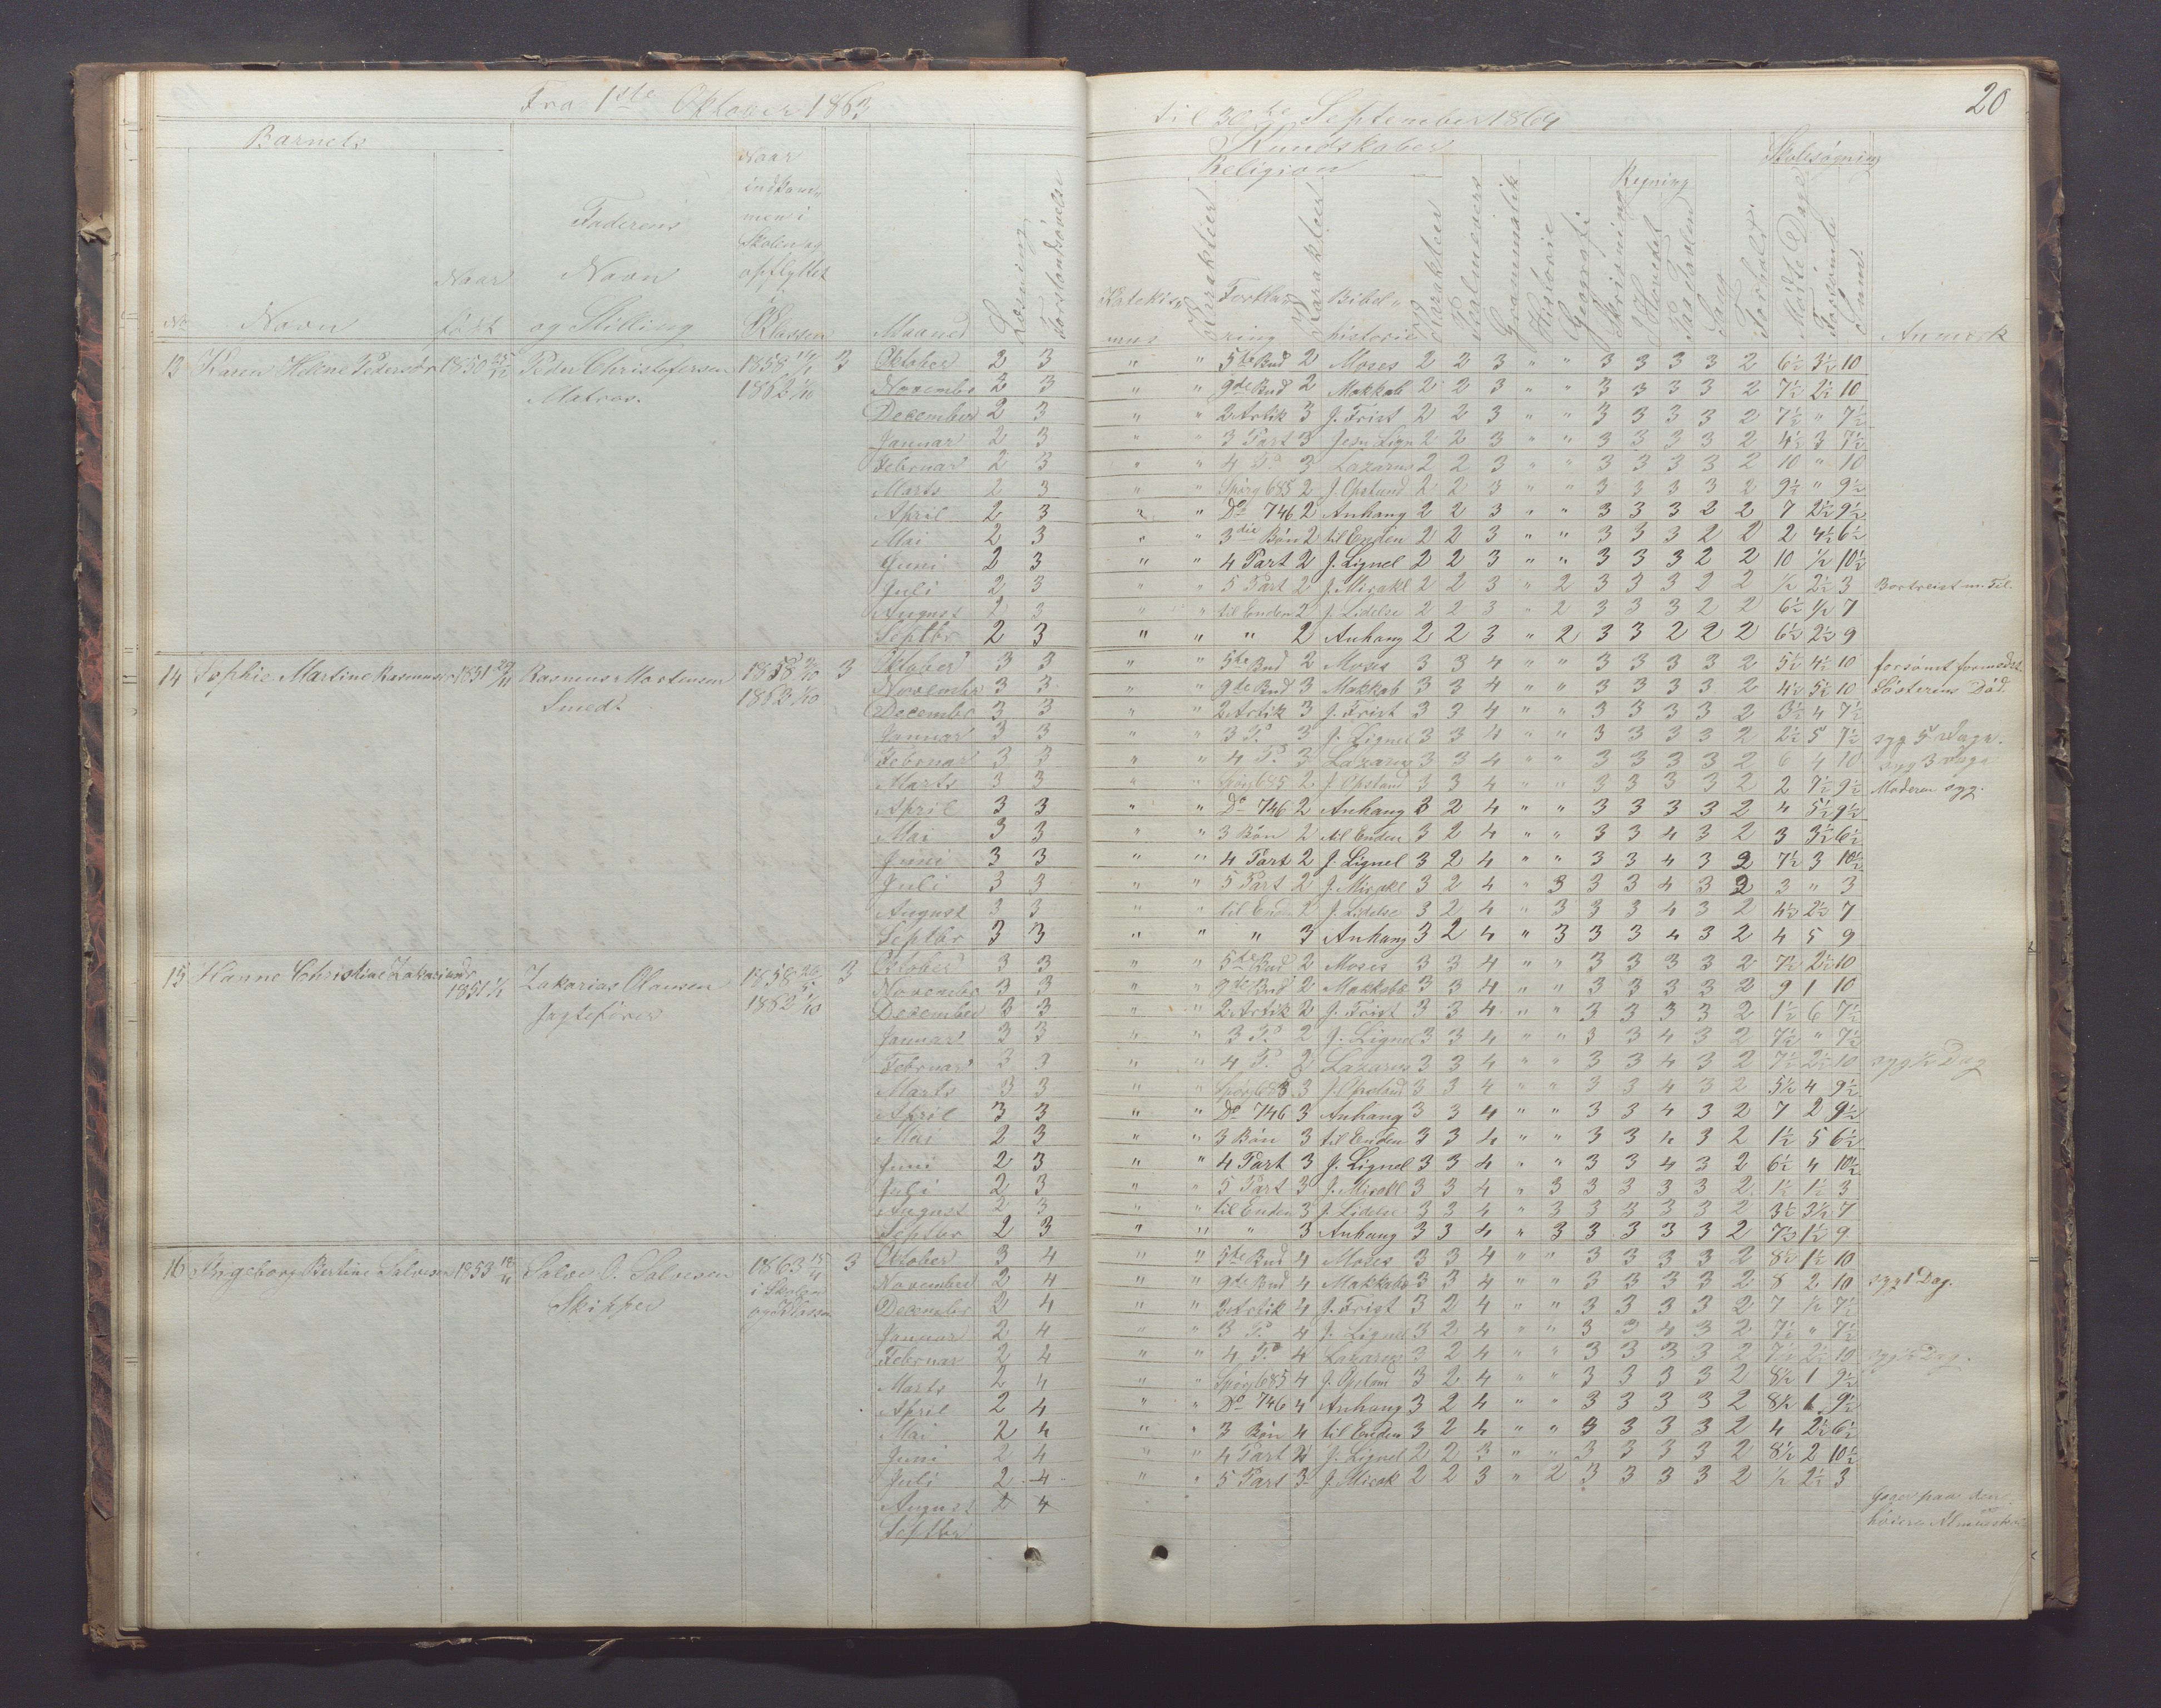 Fra 1ste Oktober 1863
til 30te September 1864
20
Barnets
Kundskaber
Religion
Skolesøgning
Regning
No
Navn
Naar født
Faderens Navn og Stilling
Naar indkommen i Skolen og opflyttet i Klassen
Maaned
Læsning
Forstandsøvelse
Katekismus
Karakter
Forklaring
Karakter
Bibelhistorie
Karakter
Psalmevers
Grammatik
Historie
Geografi
Skrivning
i Hovedet
paa Tavlen
Sang
Forhold
Mødte Dage
Forsømte
Summa
Anmærk
13 Karen Helene Peders 1850 Peder Christofersen 1858 3 Oktober 2 3 " " 5te Bud 2 Moses 2 2 3 " " 3 3 3 3 2 6½ 3½ 10
Matros. 1862 1/10 November 2 3 " " 9de Bud 2 Makkab 2 2 3 " " 3 3 3 3 2 7½ 2½ 10
December 2 3 " " 2 Artik 3 J. Frist 2 2 3 " " 3 3 3 3 2 7½ " 7½
Januar 2 3 " " 3 Part 3 Jesu Lign 2 2 3 " " 3 3 3 3 2 4½ 3 7½
Februar 2 3 " " 4 P. 3 Lazarus 2 2 3 " " 3 3 3 3 2 10 " 10
Marts 2 3 " " Spørg 685 2 J. Opstand 2 2 3 " " 3 3 3 3 2 9½ " 9½
April 2 3 " " Do 746 2 Anhang 2 2 3 " " 3 3 3 2 2 7 2½ 9½
Mai 2 3 " " 3die Bøn 2 til Enden 2 2 3 " " 3 3 3 2 2 2 4½ 6½
Juni 2 3 " " 4 Part 2 J. Lignel 2 2 3 " " 3 3 3 2 2 10 ½ 10½
Juli 2 3 " " 5 Part 2 J. Mirakl 2 2 3 " 2 3 3 3 2 2 ½ 2½ 3 Bortreist m. Til.
August 2 3 " " til Enden 2 J. Lidelse 2 2 3 " 2 3 3 3 2 2 6½ ½ 7
Septbr 2 3 " " " 2 Anhang 2 2 3 " 2 3 3 2 2 2 6½ 2½ 9
14 Sophie Martine Rasmusdr 1851 Rasmus Mortensen 1858 3 Oktober 3 3 " " 5te Bud 2 Moses 3 3 4 " " 3 3 3 3 2 5½ 4½ 10 forsømt formedst
Smedt 1863 1/10 November 3 3 " " 9de Bud 3 Makkab 3 3 4 " " 3 3 3 3 2 4½ 5½ 10 Søsterens Død.
December 3 3 " " 2 Artik 3 J. Frist 3 3 4 " " 3 3 3 3 2 3½ 4 7½
Januar 3 3 " " 3 P. 3 J. Lignel 3 3 4 " " 3 3 3 3 2 2½ 5 7½ syg 5 Dage.
Februar 3 3 " " 4 P. 3 Lazarus 3 3 4 " " 3 3 3 3 2 6 4 10 syg 3 Dage
Marts 3 3 " " Spørg 685 2 J. Opstand 3 3 4 " " 3 3 3 3 2 2 7½ 9½ Moderen syg.
April 3 3 " " Do 746 2 Anhang 3 2 4 " " 3 3 3 3 2 4 5½ 9½
Mai 3 3 " " 3 Bøn 2 til Enden 3 2 4 " " 3 3 4 3 2 3 3½ 6½
Juni 3 3 " " 4 Part 2 J. Lignel 3 2 4 " " 3 3 4 3 2 7½ 3 10½
Juli 3 3 " " 5 Part 2 J. Mirakl 3 2 4 " 3 3 3 4 3 2 3 " 3
August 3 3 " " til Enden 2 J. Lidelse 3 2 4 " 3 3 3 4 3 2 4½ 2½ 7
Septbr 3 3 " " " 3 Anhang 3 2 4 " 3 3 3 4 3 2 4 5 9
15 Hanne Christine Zakariasdr 1851 Zakarias Olausen 1858 3 Oktober 3 3 " " 5te Bud 2 Moses 3 3 4 " " 3 3 3 3 2 7½ 2½ 10
Jagtefører 1862 1/10 November 3 3 " " 9de Bud 2 Makkab 3 3 4 " " 3 3 3 3 2 9 1 10
December 3 3 " " 2 Artik 2 J. Frist 3 3 4 " " 3 3 3 3 2 1½ 6 7½
Januar 3 3 " " 3 P. 2 J. Lignel 3 3 4 " " 3 3 4 3 2 7½ " 7½
Februar 3 3 " " 4 P. 2 Lazarus 3 3 4 " " 3 3 4 3 2 7½ 2½ 10 syg ½ Dag
Marts 3 3 " " Spørg 685 3 J. Opstand 3 3 4 " " 3 3 4 3 2 5½ 4 9½
April 3 3 " " Do 746 3 Anhang 3 3 4 " " 3 3 4 3 2 7 2 9½
Mai 2 3 " " 3 Bøn 3 til Enden 3 3 4 " " 3 3 4 3 2 1½ 5 6½
Juni 2 3 " " 4 Part 3 J. Lignel 3 3 4 " " 3 3 4 3 2 6½ 4 10½
Juli 2 3 " " 5 Part 3 J. Mirakl 3 3 4 " 3 3 3 3 3 2 1½ 1½ 3
August 2 3 " " til Enden 3 J. Lidelse 3 3 4 " 3 3 3 3 3 2 3½ 3½ 7
Septbr 2 3 " " " 3 Anhang 3 3 4 " 3 3 3 3 3 2 7½ 1½ 9
16 Ingeborg Bertine Salvesen 1853 Salve O. Salvesen 1863 3 Oktober 3 4 " " 5te Bud 4 Moses 3 3 4 " " 3 3 3 3 2 8½ 1½ 10
Skipper i Skolen November 2 4 " " 9de Bud 4 Makkab 3 3 4 " " 3 3 3 3 2 8 2 10 syg 1 Dag.
og Klassen December 2 4 " " 2 Artik 4 J. Frist 3 2 4 " " 3 3 3 3 2 7 ½ 7½
Januar 2 4 " " 3 P. 4 J. Lignel 3 2 4 " " 3 3 4 3 2 7½ " 7½
Februar 2 4 " " 4 P. 4 Lazarus 3 2 4 " " 3 3 3 3 2 7½ 2½ 10 syg ½ Dag.
Marts 2 4 " " Spørg 685 4 J. Opstand 3 2 4 " " 3 3 3 3 2 8½ 1 9½
April 2 4 " " Do 746 4 Anhang 3 2 4 " " 3 3 3 3 2 8½ 1 9½
Mai 2 4 " " 3 Bøn 4 til Enden 3 2 4 " " 3 3 3 3 2 4 2½ 6½
Juni 2 4 " " 4 Part 4 J. Lignel 2 2 3 " " 3 3 3 3 2 8½ 2 10½
Juli 2 4 " " 5 Part 3 J. Mirak 2 2 3 " 2 3 3 3 3 2 ½ 2½ 3
August 2 4 Gaaer paa den
Septbr høiere Almueskole